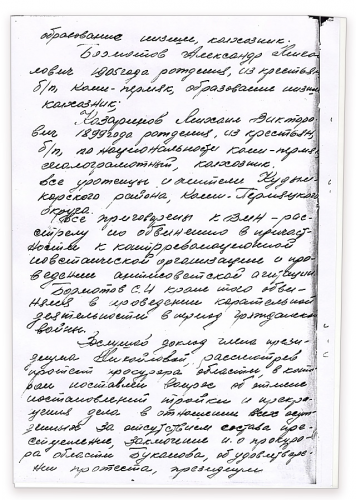 образование низшее, колхозник.
Бормотов Александр Михай-
лович 1905 года рождения, из крестьян
б/п, коми-пермяк, образование низшее
колхозник.
Казаринов Михаил Виктор-
ович 1899 года рождения, из крестьян,
б/п, по национальности коми-пермяк
малограмотный, колхозник.
Все уроженцы и жители Кудым-
карского района, Коми-Пермяцкого
округа.
Все приговорены к ВМН - рас-
стрелу по обвинению в причаст-
ности к контрреволюционной
повстанческой организации и про-
ведении антисоветской агитации
Бормотов С.И кроме того обви-
нялся в проведении карательной
деятельности в период гражданской
войны.
Заслушав доклад члена прези-
диума Михайловой, рассмотрев
протест прокурора области, в кото-
ром поставлен вопрос об отмене
постановлений тройки и прекра-
щения дела в отношении всех осуж-
денных за отсутствием состава пре-
ступления, заключение и.о прокуро-
ра области Буканова, об удовлетворе-
нии протеста, президиум